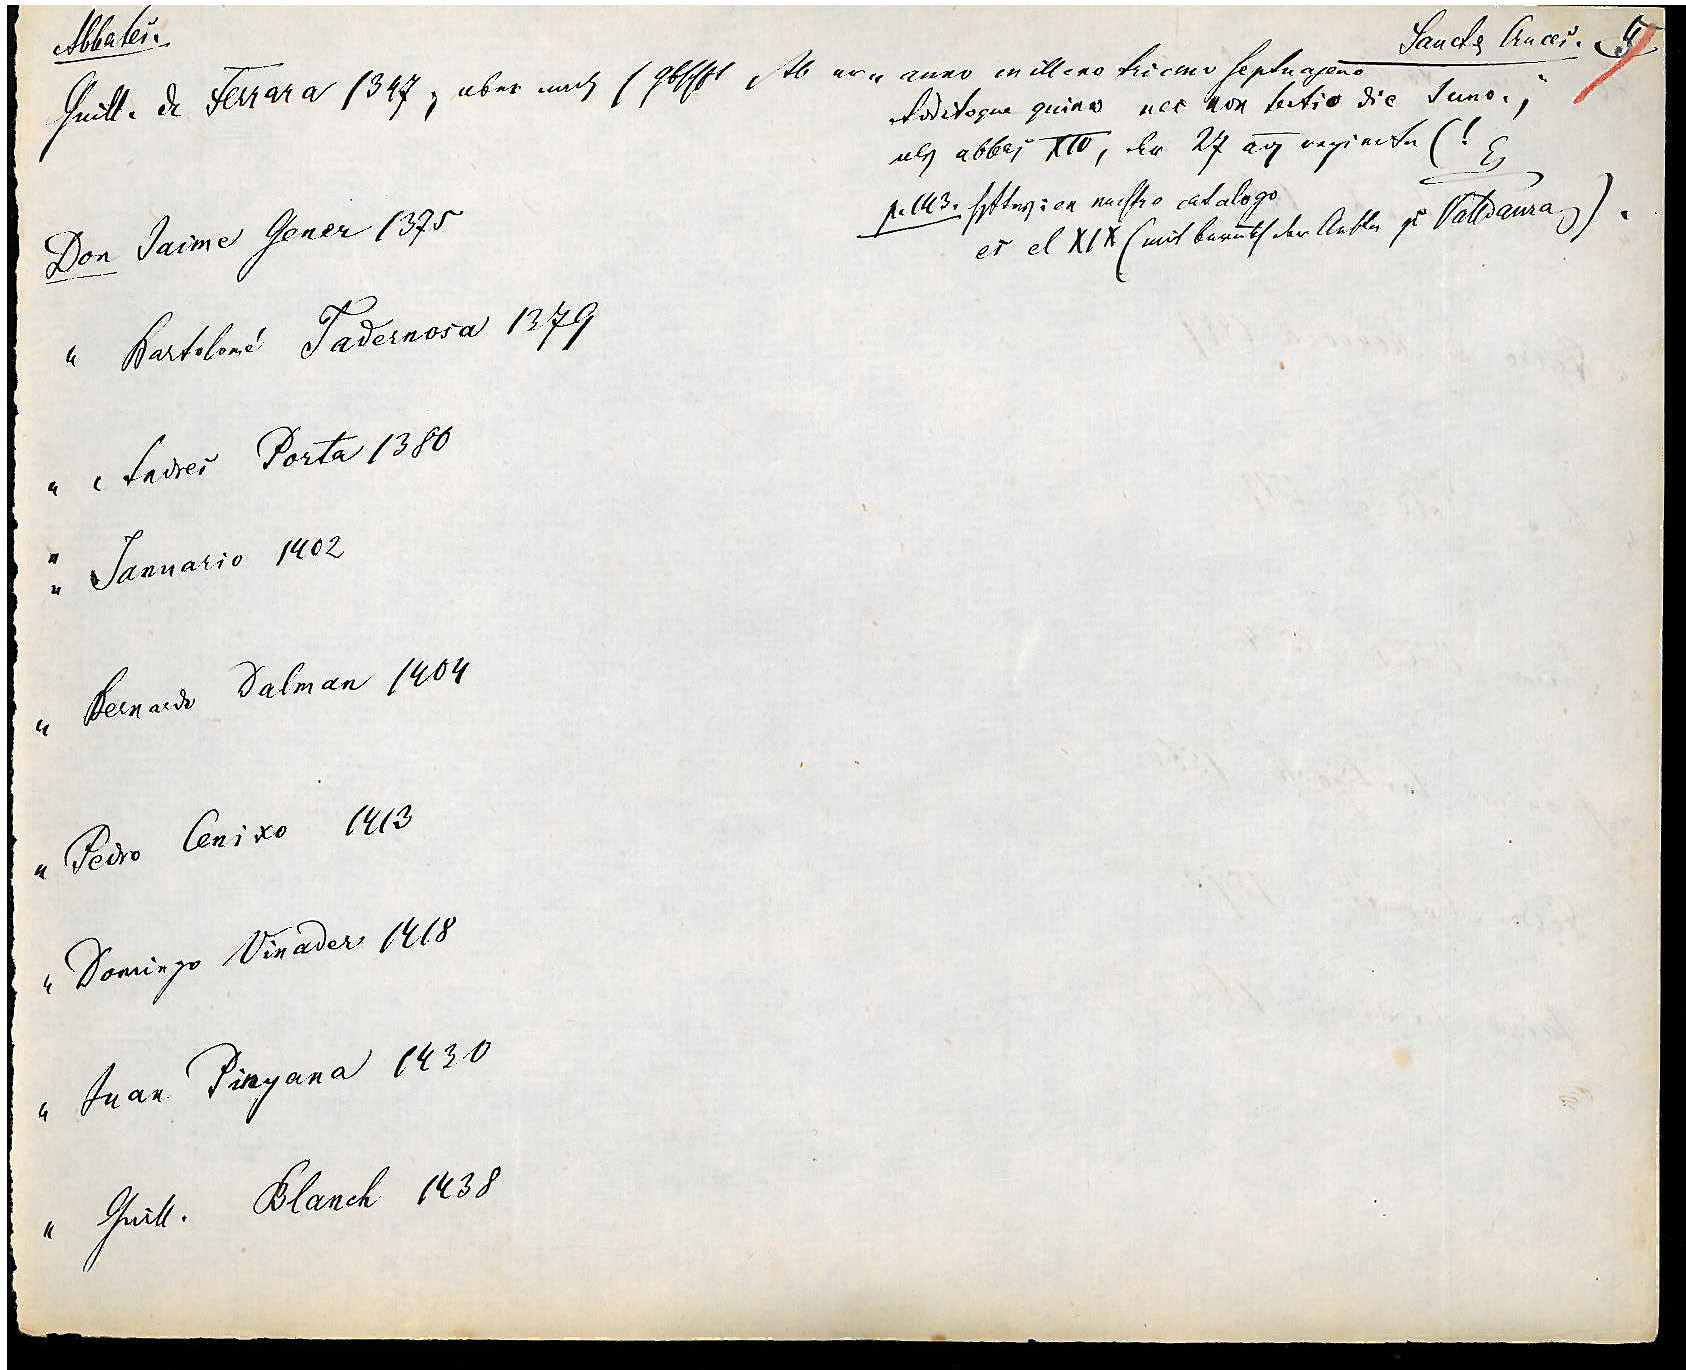 Abbates.
Sanctes Cruces. 4
Guill. de Ferrara 1347, aber nach Ab anno milleno triceno septuageno
Additoque quino nec non tertio die Juno.,
abbas XIV, der 27 an regierte (! Es
p. 143. en nuestro catalogo
es el XIX (mit der zu Valldaura)).
Don Jaime Gener 1375
" Bartolomé Tadernosa 1379
" Andres Porta 1380
" Januario 1402
" Bernardo Dalman 1404
" Pedro Cenixo 1413
" Domingo Vinader 1418
" Juan Pinyana 1430
" Guill. Blanch 1438